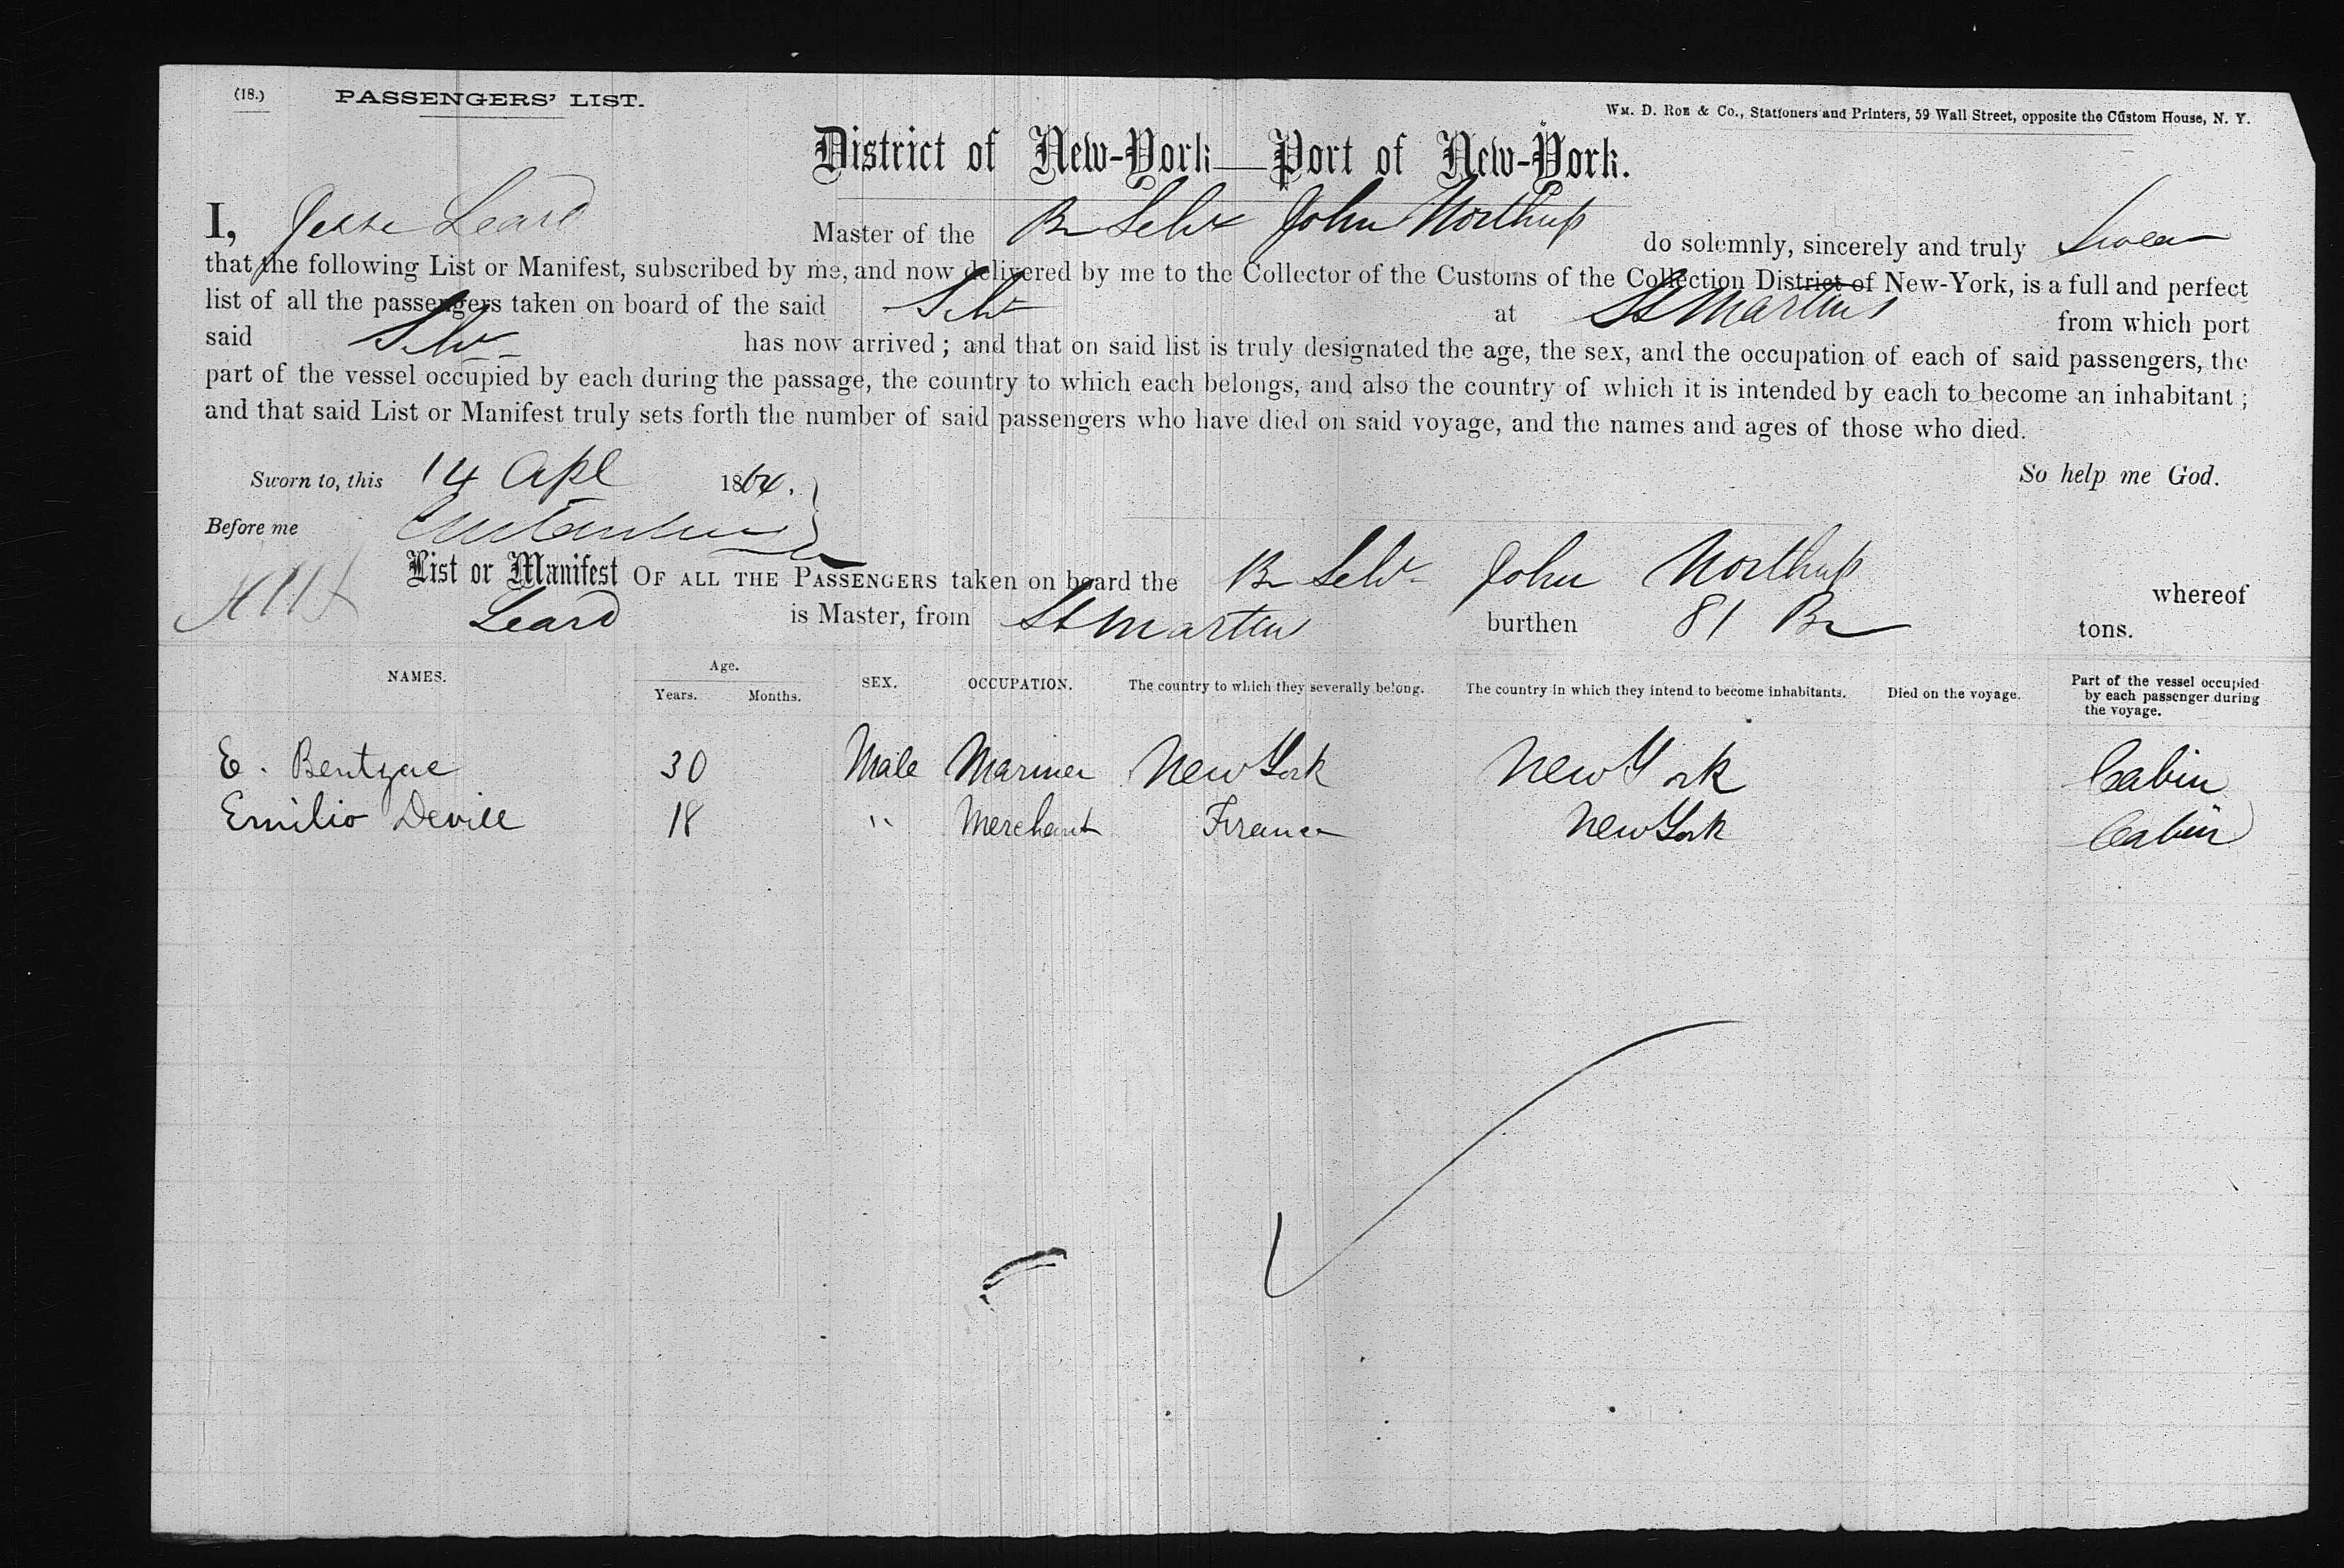 (18.) PASSENGERS' LIST.
Wm. D. Roe & Co., Stationers and Printers, 59 Wall Street, opposite the Custom House, N. Y.
District of New-York—Port of New-York.
I, Jesse Leard Master of the Br Schr John Northup do solemnly, sincerely and truly Swear
that the following List or Manifest, subscribed by me, and now delivered by me to the Collector of the Customs of the Collection District of New-York, is a full and perfect
list of all the passengers taken on board of the said Schr at St Martins from which port
said Schr has now arrived; and that on said list is truly designated the age, the sex, and the occupation of each of said passengers, the
part of the vessel occupied by each during the passage, the country to which each belongs, and also the country of which it is intended by each to become an inhabitant;
and that said List or Manifest truly sets forth the number of said passengers who have died on said voyage, and the names and ages of those who died.
Sworn to, this 14 Apl 1864. So help me God.
Before me
List or Manifest OF ALL THE PASSENGERS taken on board the Br Schr John Northup whereof
Leard is Master, from St Martin burthen 81 Br tons.
NAMES. Age. Years. Months. SEX. OCCUPATION. The country to which they severally belong. The country in which they intend to become inhabitants. Died on the voyage. Part of the vessel occupied by each passenger during the voyage.
E. Bentzae 30 Male Mariner New York New York Cabin
Emilio Deville 18 " Merchant France New York Cabin